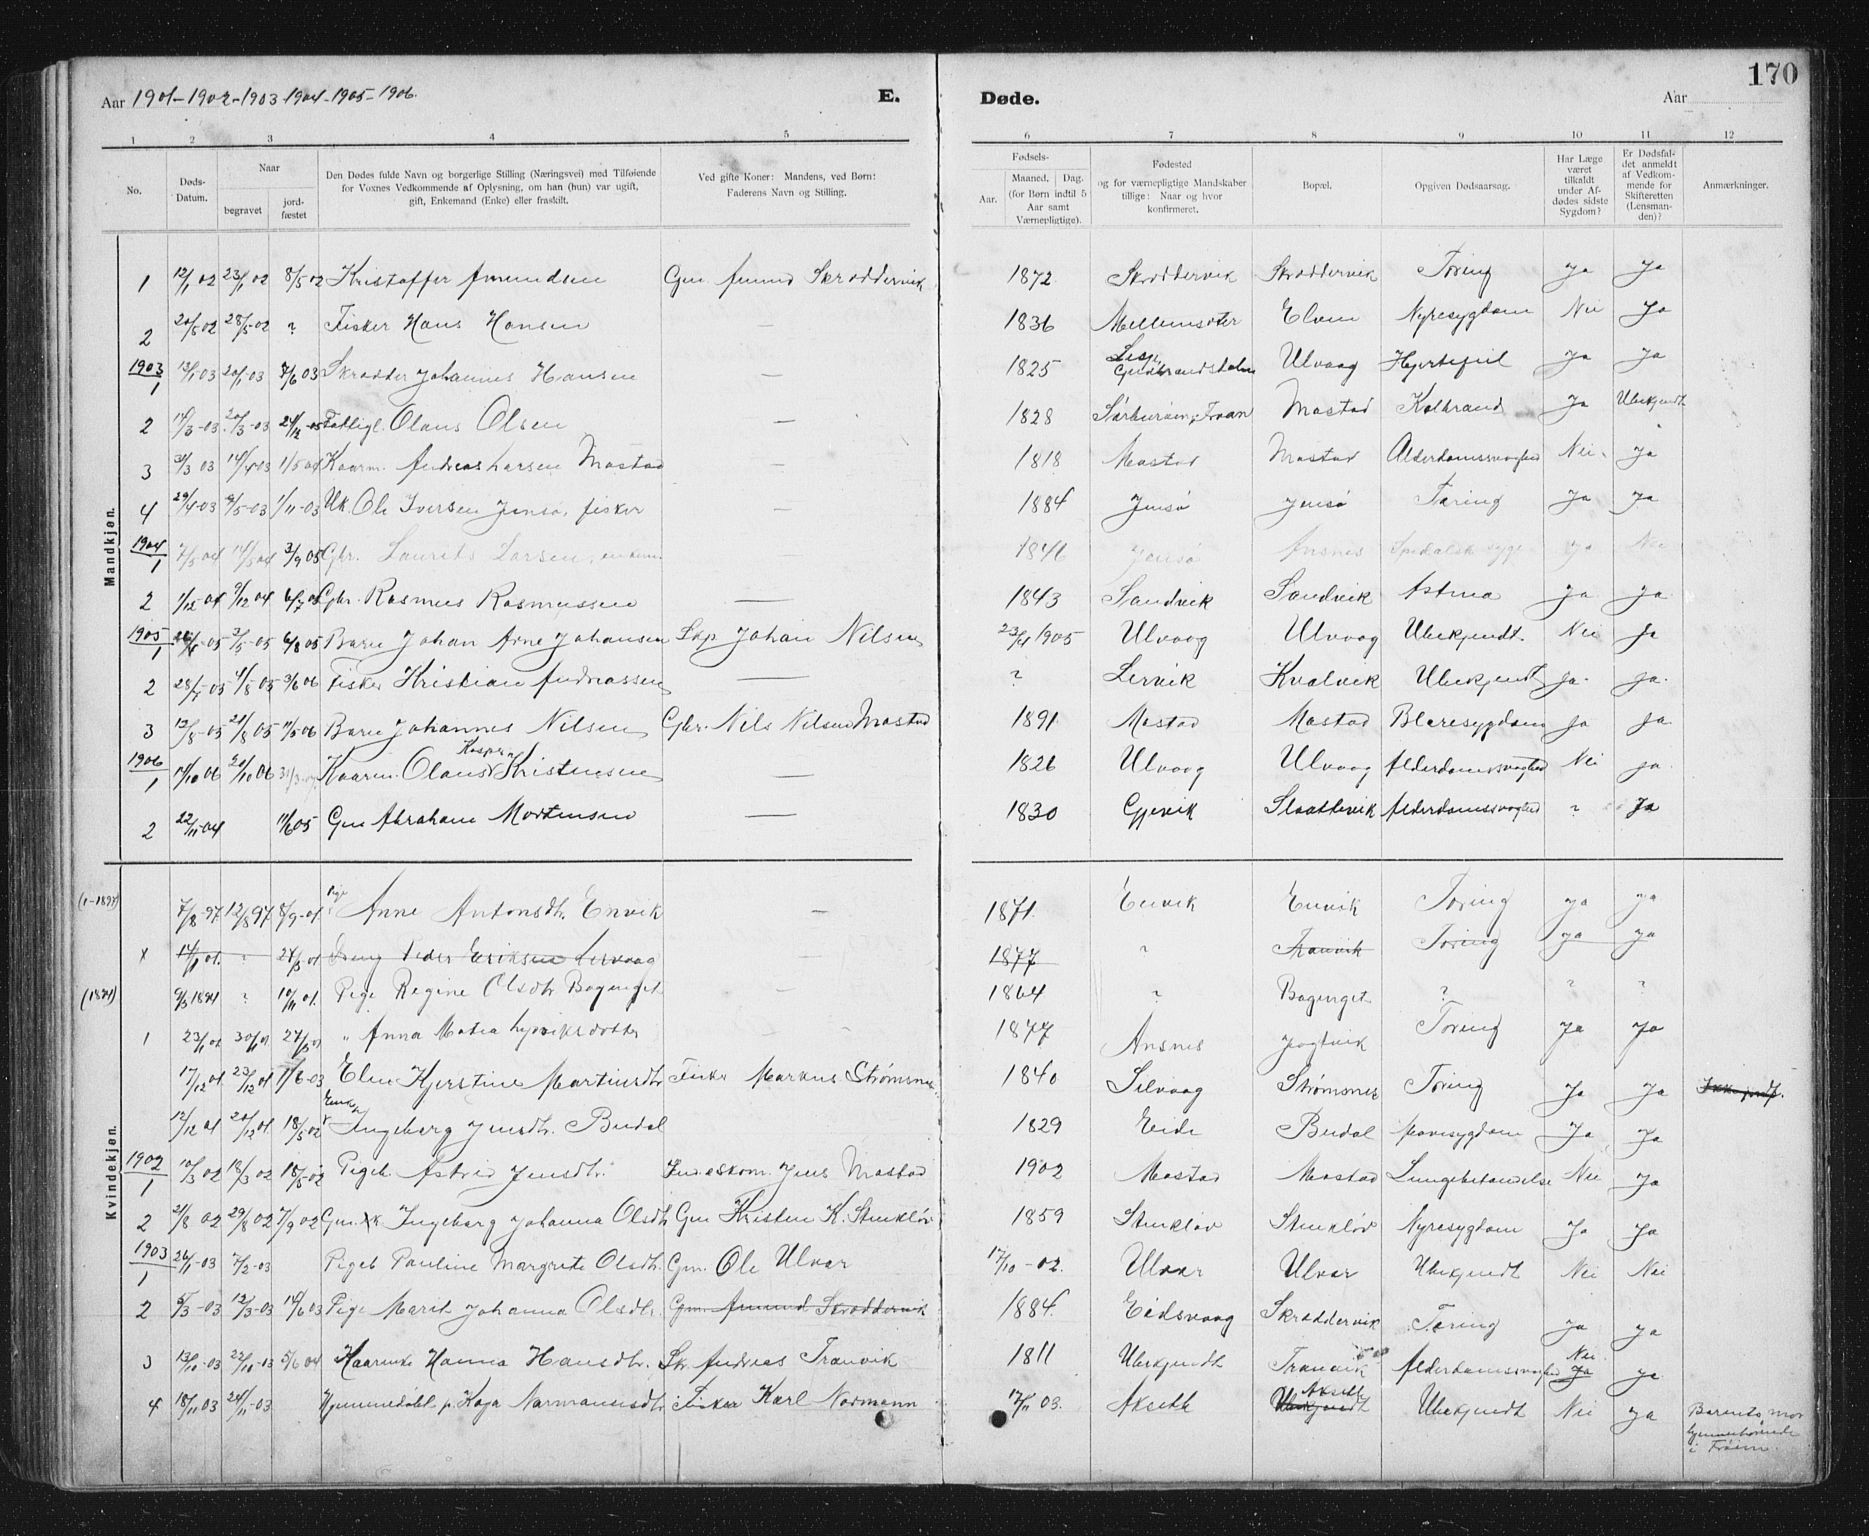 170
Aar 1901-1902-1903-1904-1905-1906. E. Døde. Aar
1 2 3 4 5 6 7 8 9 10 11 12
No.
Døds-Datum.
Naar
begravet
jord-fæstet
Den Dødes fulde Navn og borgerlige Stilling (Næringsvei) med Tilføiende for Voxnes Vedkommende af Oplysning, om han (hun) var ugift, gift, Enkemand (Enke) eller fraskilt.
Ved gifte Koner: Mandens, ved Børn: Faderens Navn og Stilling.
Fødsels-
Aar.
Maaned, Dag. (for Børn indtil 5 Aar samt Værnepligtige).
Fødested og for værnepligtige Mandskaber tillige: Naar og hvor konfirmeret.
Bopæl.
Opgiven Dødsaarsag.
Har Læge været tilkaldt under Afdødes sidste Sygdom?
Er Dødsfaldet anmeldt af Vedkommende for Skifteretten (Lensmanden)?
Anmærkninger.
Mandkjøn.
1 12/1 02 23/1 02 8/5 02 Kristoffer Amundsen Gm. Amund Skroddervik 1872 Skroddervik Skroddervik Tæring Ja Ja
2 20/5 02 28/5-02 ? Fisker Hans Hansen — 1836 Mellemsæter Elven Nyresygdom Nei Ja
1903
1 13/1 03 20/1 03 7/6 03 Skrædder Johannes Hansen — 1825 Lesje Gudbrandsdalen Ulvaag Hjertefeil Ja Ja
2 14/3-03 20/3-03 Fattigl. Olaus Olsen — 1828 Mastad Kolbrand Ja Ubekjendt
3 31/3 03 14/4 03 1/5 04 Kaarm. Andreas Larsen Mastad — 1818 Mastad Mastad Alderdomssvaghed Nei. Ja
4 29/4-03 5-03 1/11-03 Uk. Ole Iversen Jensø, fisker — 1884 Jensø Jensø Tæring Ja Ja
1904
1 7/5 04 14/5 04 3/9 05 Gbr. Laurits Larsen, 1846 Jensø Ansnes Spedalsk syge Ja Nei
2 1/12 04 9/12 04 6/7 05 Gbr. Rasmus Rasmussen — 1843 Sandvik Sandvik Astma Ja Ja
1905
1 3/5-05 6/8 05 Barn Johan Arne Johansen Johan Nilsen 23/4 1905 Ulvaag Ulvaag Ubekjendt. Nei Ja
2 28/7-05 4/8 05 3/6 06 Fisker Kristian Andreassen — ? Lervik Kvalvik Ubekjendt Ja. Ja.
3 13/8-05 20/8 05 11/5 06 Barn Johannes Nilsen Gbr. Nils Nilsen Mastad 1891 Mastad Mastad Blæresygdom Ja Ja
1906
1 14/10 06 20/10 06 Kaarm. Olaus Kristensen — 1826 Ulvaag Ulvaag Alderdomssvaghed Nei Ja
2 22/11-04 11/6 05 Gm Abraham Mortensen — 1830 Gjevik Slaattevik Alderdomssvaghed ? Ja
Kvindekjøn.
(1-1897) 7/8-97 12/8 97 8/9-01 Pige Anne Antonsdtr. Envik — 1871. Envik Envik Tæring Ja Ja
x 14/1 01. " 27/3-01 Dreng Peder Eriksen Lervaag — 1877 " Tranvik Tæring Ja Ja
(1894) 9/3 1894 ? 10/11 01. Pige Regine Olsdtr Bogenget — 1864 ? Bogenget ? ? ?
1 23/1 01 30/1 01 27/3 01 " Anna Matea 1877 Ansnes Jogtvik Tæring Ja Ja
17/12 01. 23/12 01 11/6-03 Elen Kjerstine Martinsdtr Fisker Markus Strømsnes 1840 Selvaag Strømsnes Tæring Ja Ja
12/12 01 20/12 01. 18/5 02 Enke Ingeborg Jensdtr. Budal 1829 Eide Budal Mavesygdom Ja Ja
1902
1 10/3 02 18/3 02 18/5 02 Pigeb. Astrid Jensdtr. Jens Mastad 1902 Mastad Mastad Lungebetændelse Nei Ja
2 21/8 02 29/8 02 7/9 02 Gm. K Ingeborg Johanna Olsdtr Gm Kristen K. Stenkløv 1859 Stenkløv Stenkløv Nyresygdom Ja Ja
1903
1 26/1-03 7/2-03 Pigeb Pauline Margrete Olsdtr. Gm. Ole Ulvær 17/10-02. Ulvær Ulvær Ubekjendt Nei Nei
2 5/3-03 12/3-03 14/6 03 Pige Marit Johanna Olsdtr. Gm. Amund Skroddervik 1884. Eidsvaag Skroddervik Tæring Ja Ja
3 13/10-03 22/10-03 5/6 04 Kaarenke Hanna Hansdtr. Andreas Tranvik 1811 Ubekjendt Tranvik Alderdomssvaghed Nei Ja Ja
4 18/11 03 24/11-03 Hjemmedøbt p. Kaja Normannsdtr. Fisker Karl Normann 17/11 03. Akseth Akseth Ubekjendt Ubekjendt Nei Ja Barnets mor hjemmehørende i Frøien.